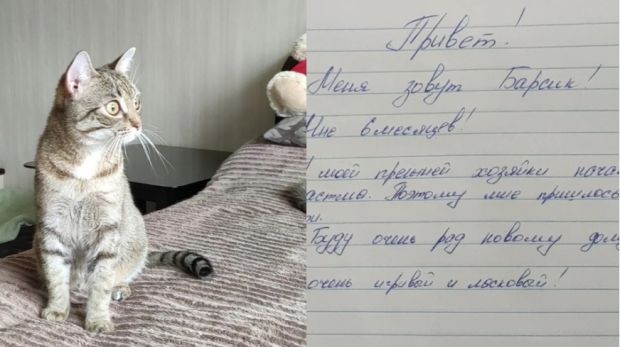 Привет!
Меня зовут Барсик!
Мне 6 месяцев!
моей прежней хозяйки нача
астма. Поэтому мне пришлось
Буду очень рад новому дом
очень игривый и ласковый!